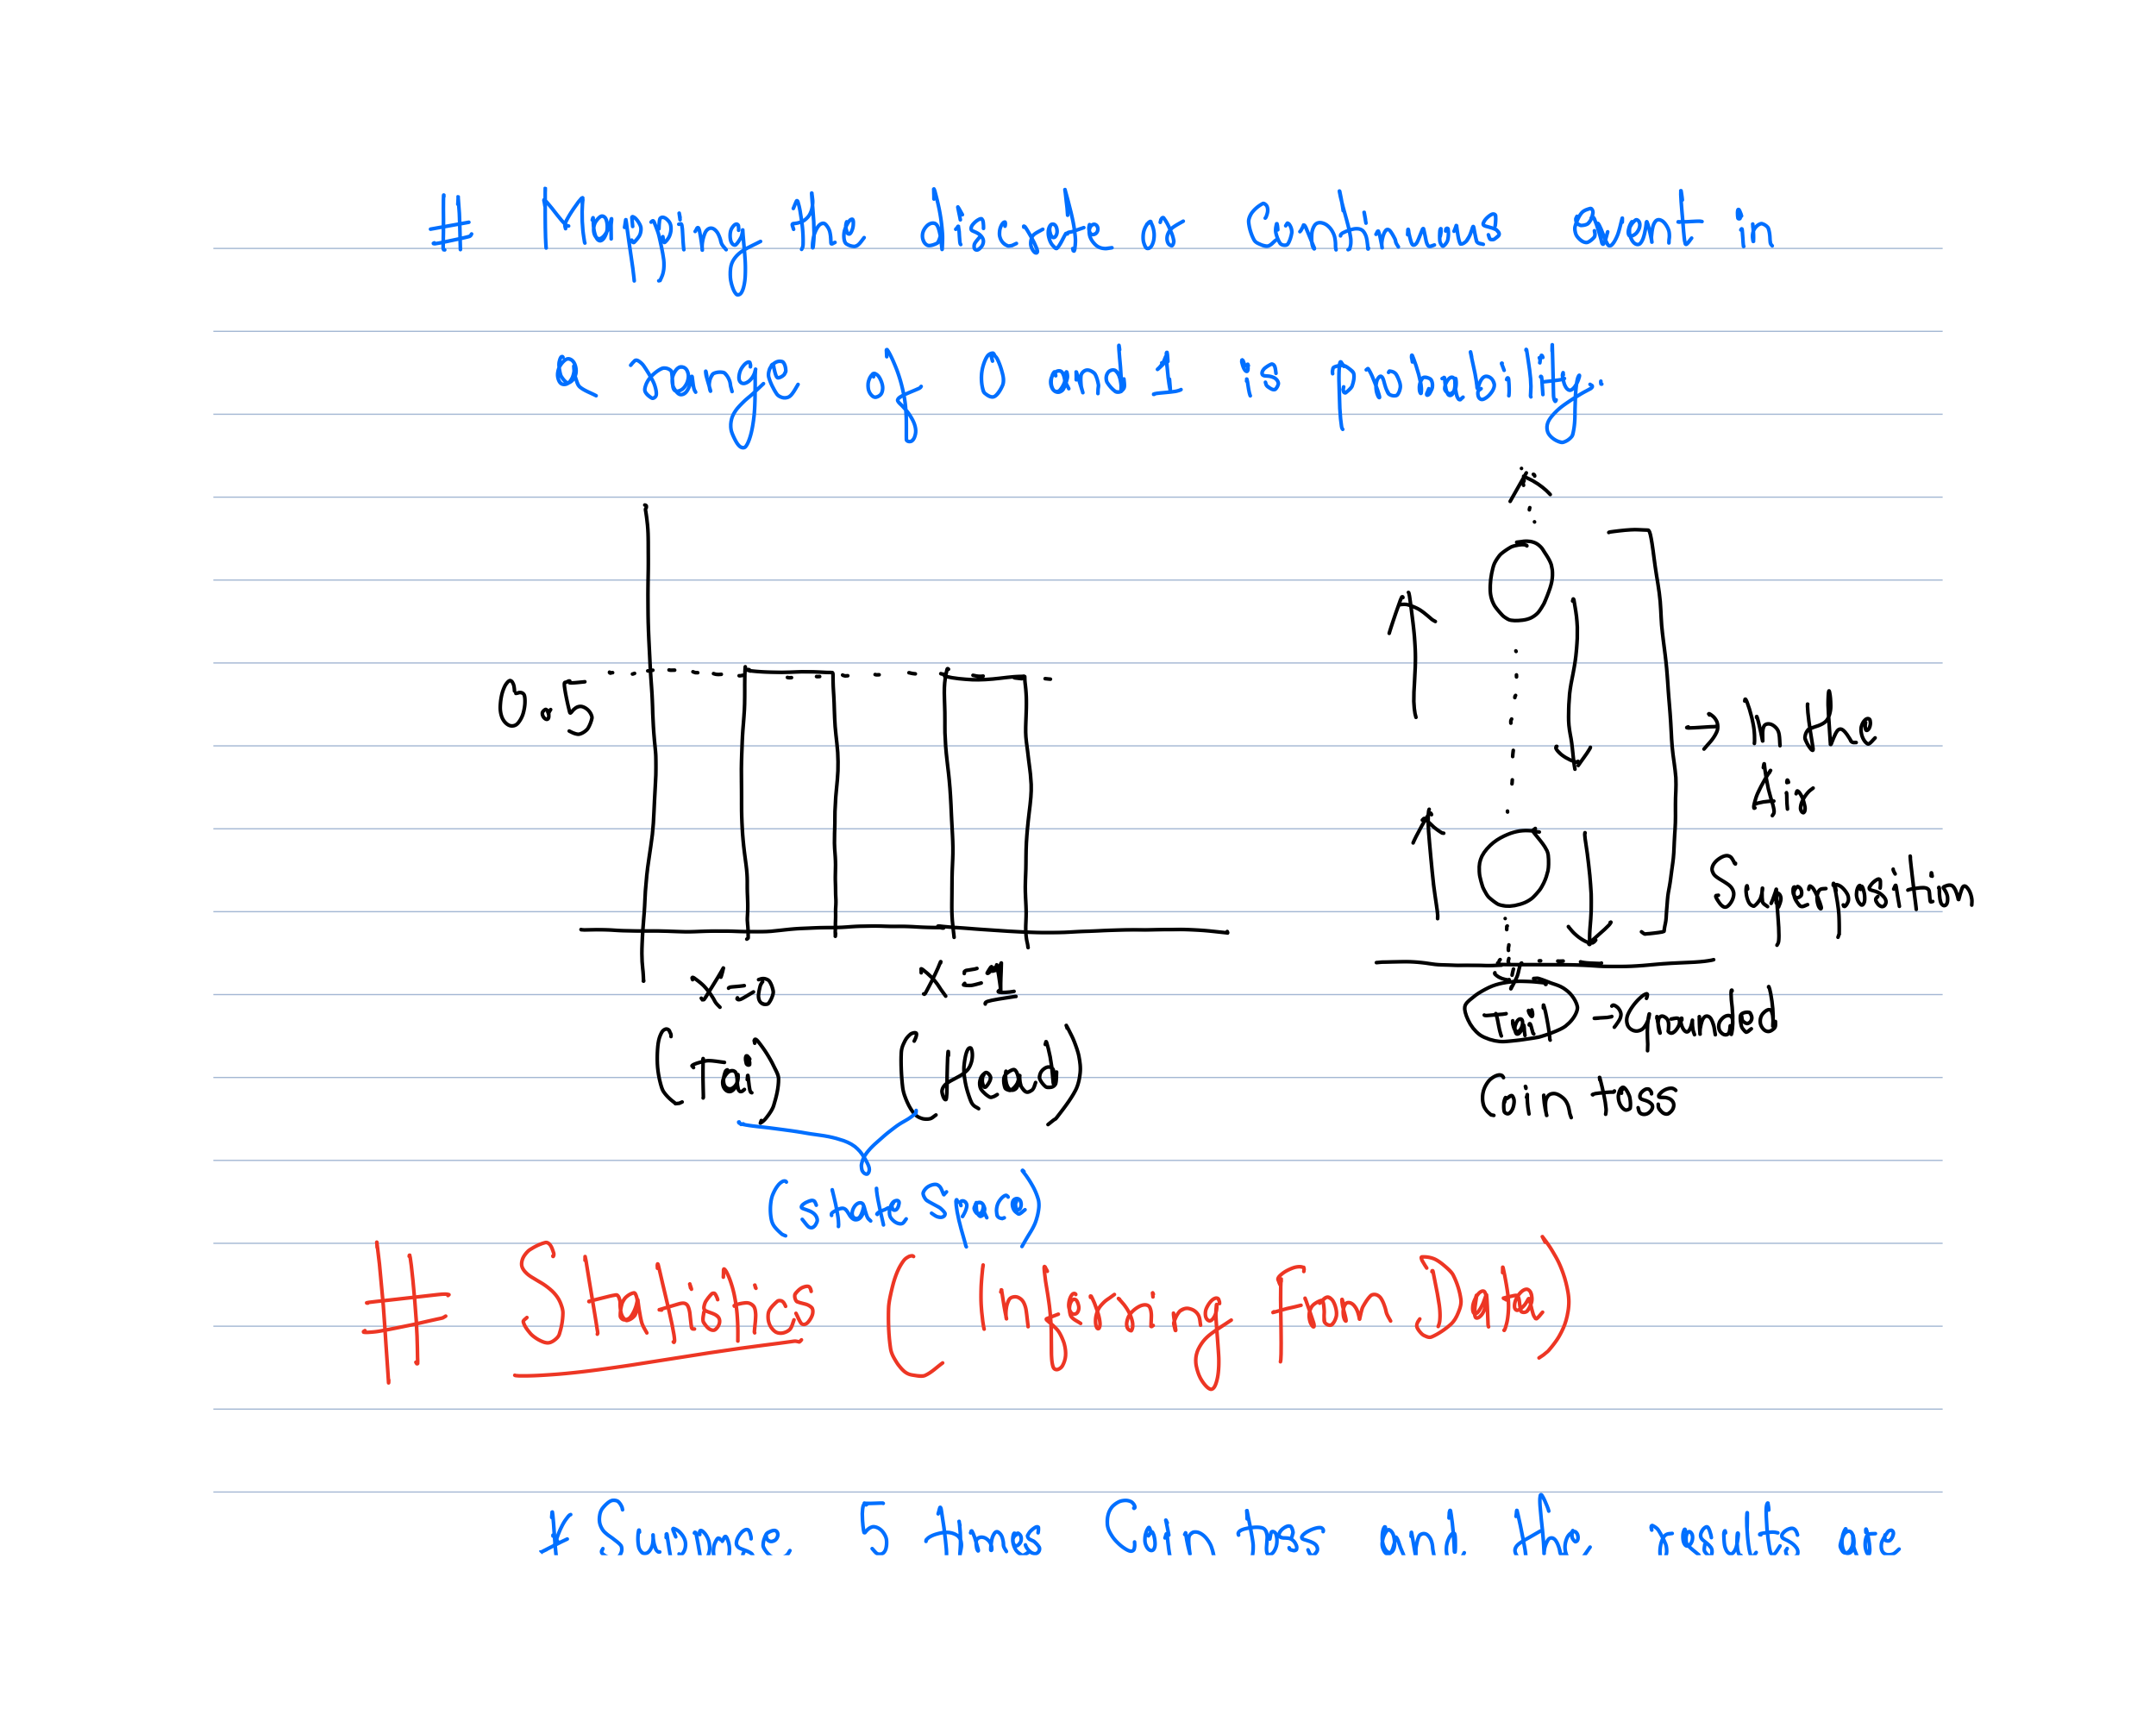 # Mapping the discrete or continuous event in
a range of 0 and 1 is probability.
0.5
x=0
(Tail)
x=1
(Head)
(state space)
→ In the
Air
Superposition
Tail → Grounded
Coin toss
# Statistics (Inferring From Data)
* Suppose 5 times Coin tossed. the results are